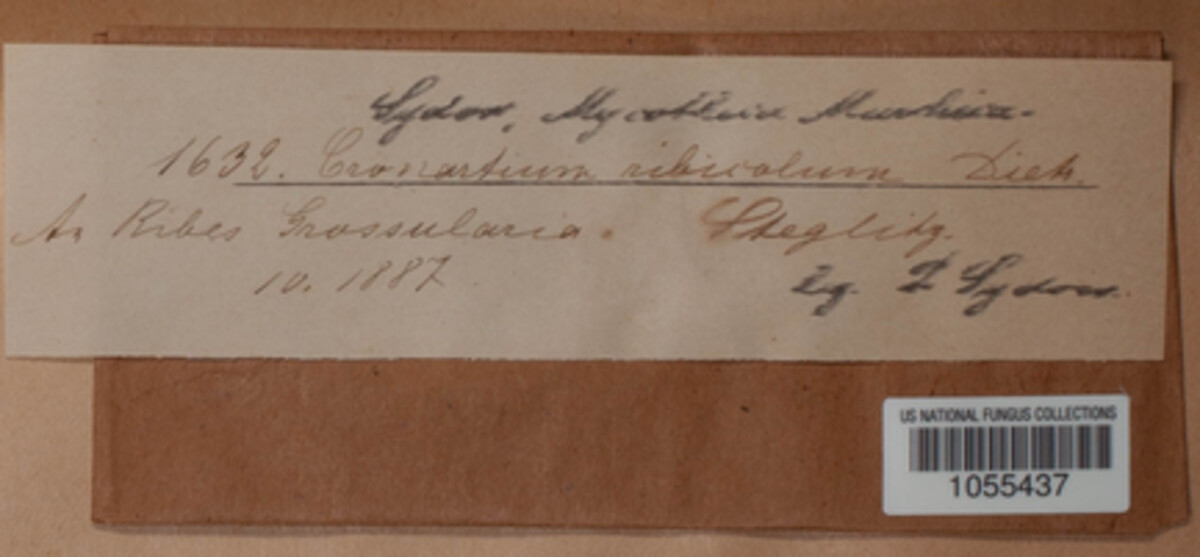 Sydow, Mycotheca Marchica.
1632. Cronartium ribicolum Dietr.
An Ribes Grossularia. Steglitz.
10. 1887
Lg. P Sydow.
US NATIONAL FUNGUS COLLECTIONS
1055437